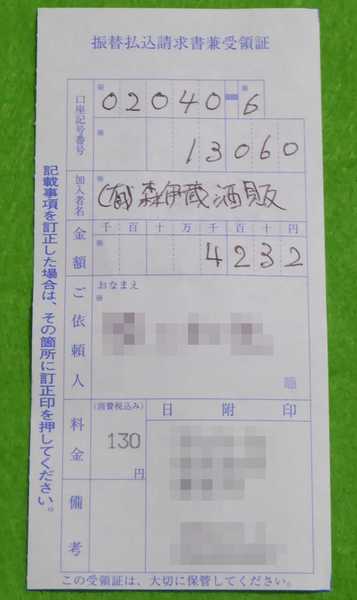 振替払込請求書兼受領証
口座記号番号
02040-6
13060
加入者名
(有)森伊蔵酒販
金額
千百十万千百十円
4232
ご依頼人
おなまえ
料金
(消費税込み)
130
円
日附印
備考
この受領証は、大切に保管してください。
記載事項を訂正した場合は、その箇所に訂正印を押してください。